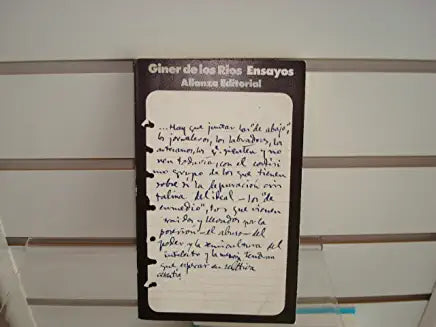 Giner de los Ríos Ensayos
Alianza Editorial
...Hay que juntar los "de abajo",
los jornaleros, los labradores, los
artesanos, los q. sienten y no
ven todavía, con el
mo grupo de los que tienen
sobre sí la
del ideal - los "de
enmedio", los que vienen
unidos y por la
posesión - el abuso - del
poder y la semicultura del
intelecto y
que esperar en